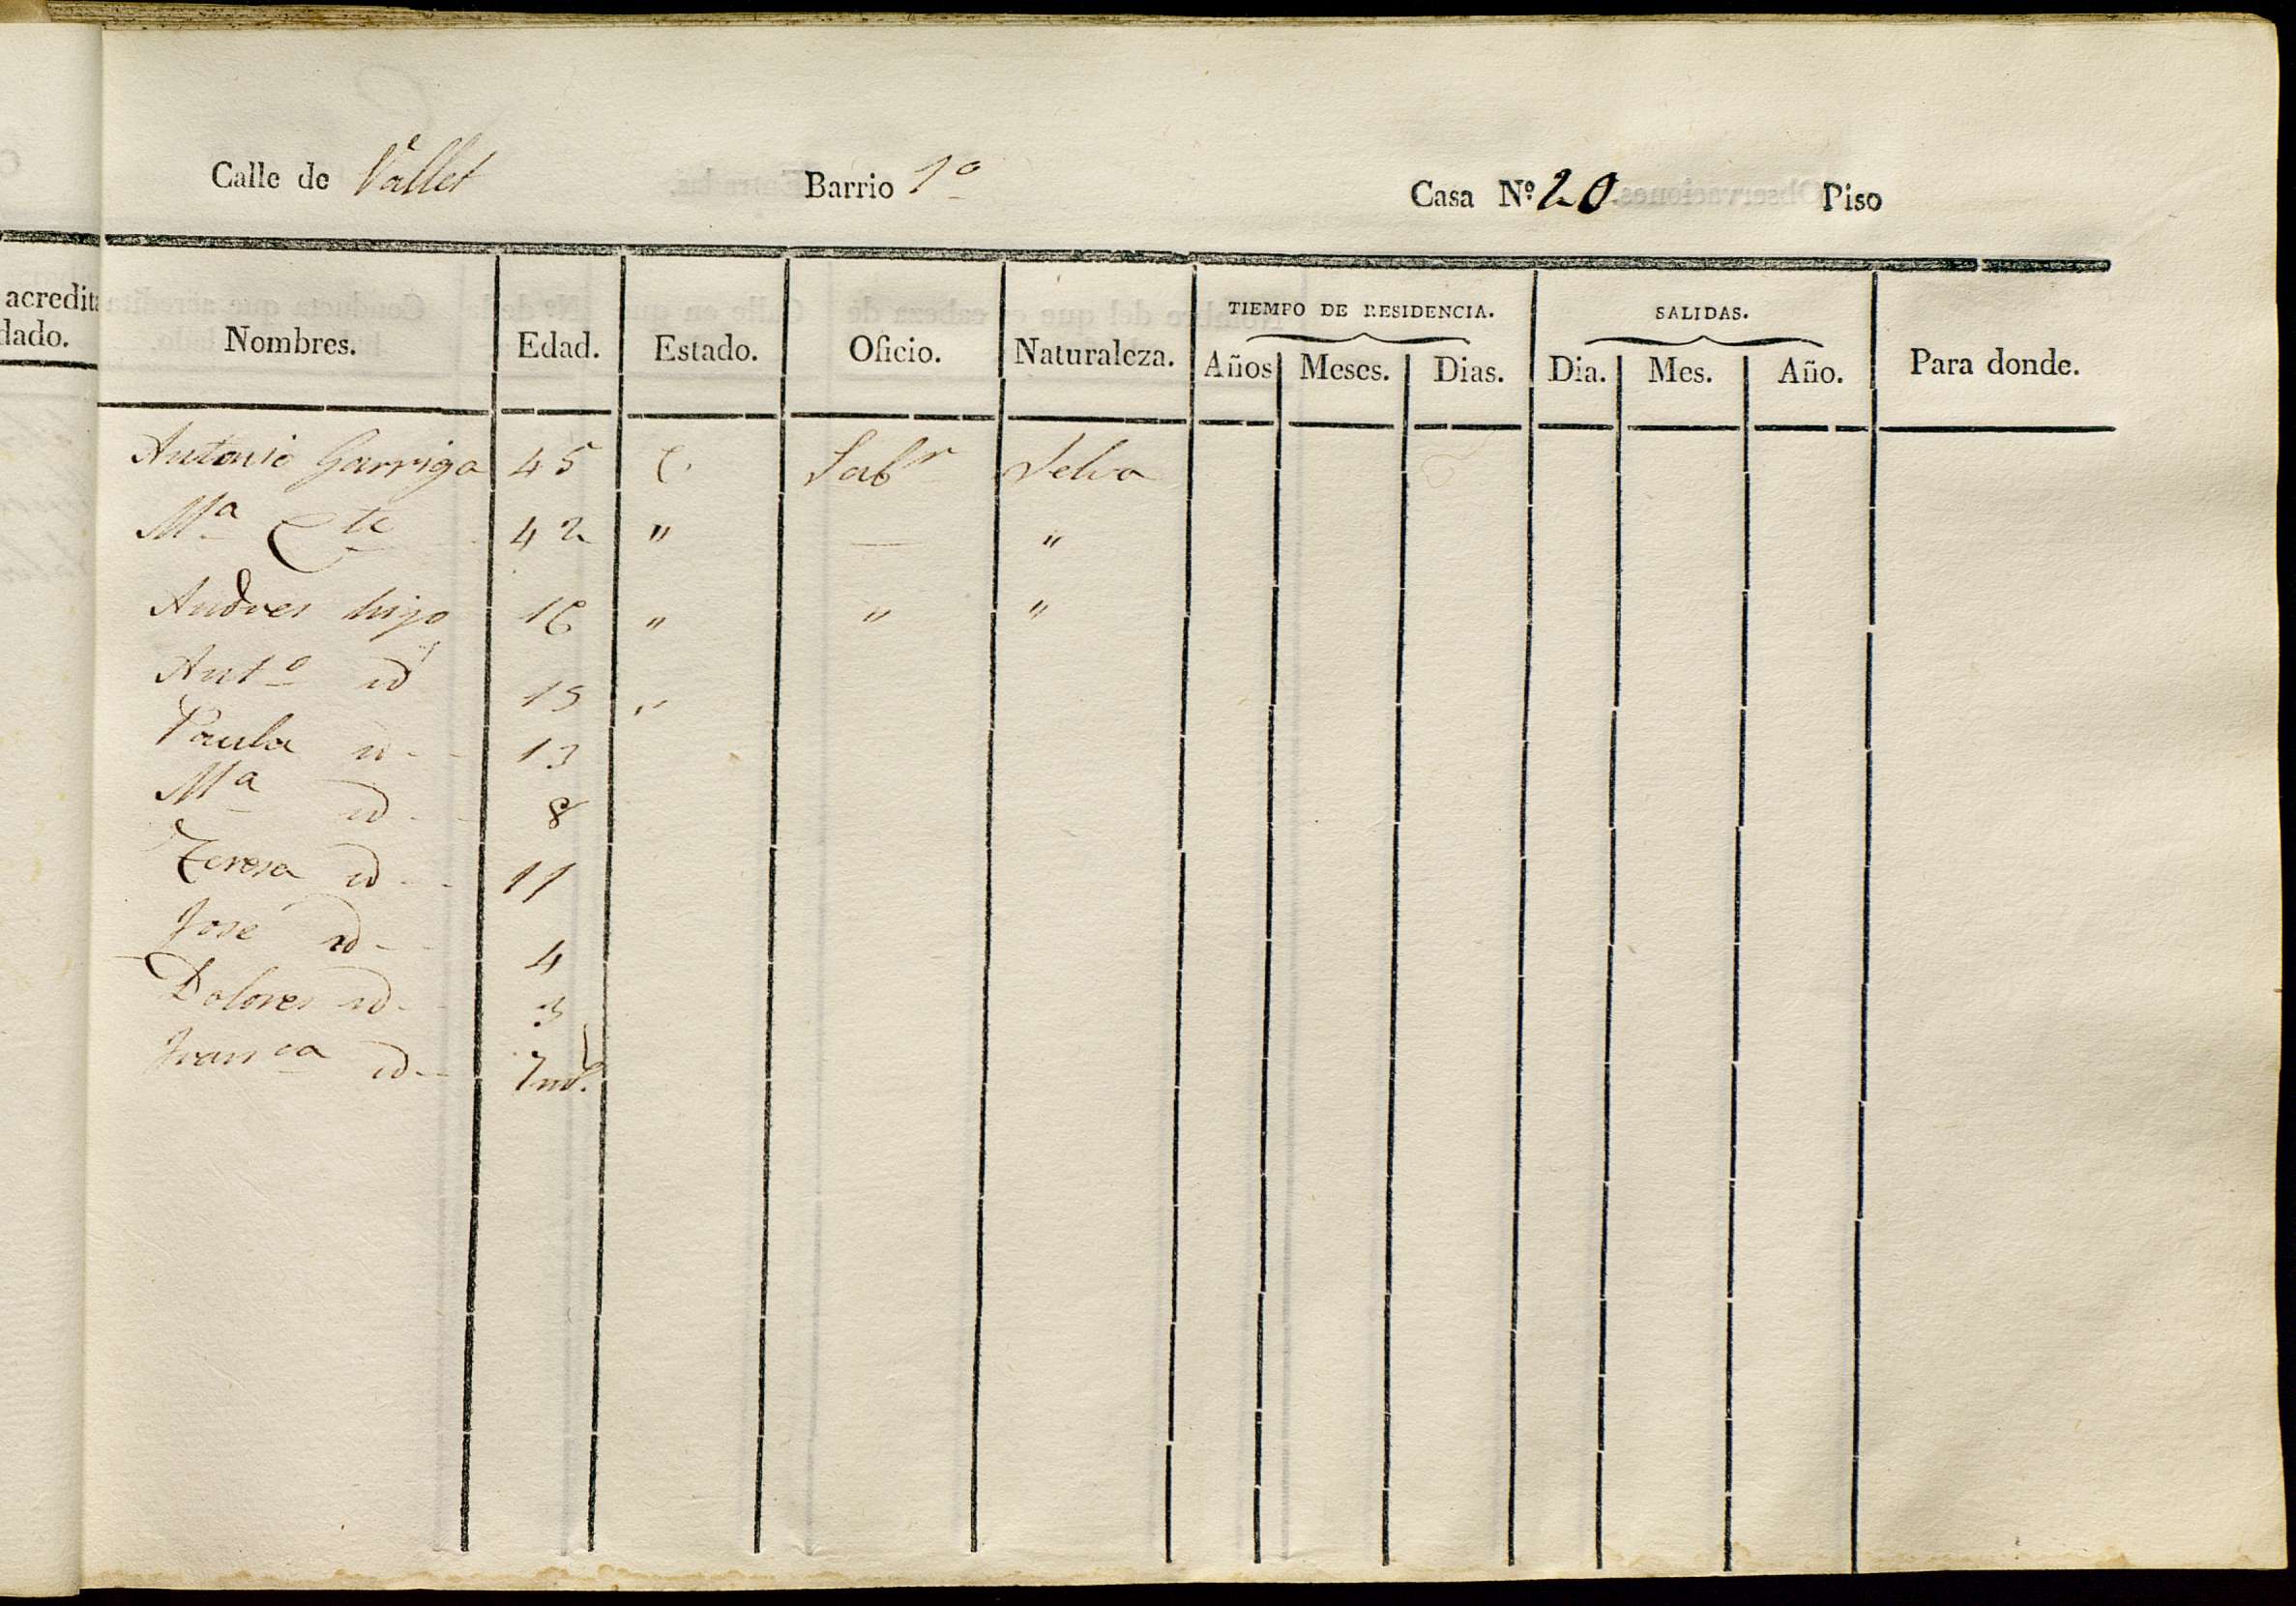 acredita
dado.
Calle de Vallet Barrio 1º Casa Nº 20 Piso
TIEMPO DE RESIDENCIA. SALIDAS.
Nombres. Edad. Estado. Oficio. Naturaleza. Años Meses. Dias. Dia. Mes. Año. Para donde.
Antonio Garriga 45 C. Labr Selva
Mª Cte 42 " — "
Andres hijo 16 " " "
Antº id 15 "
Paula id 13
Mª id 8
Teresa id 11
José id 4
Dolores id 3
Franca id